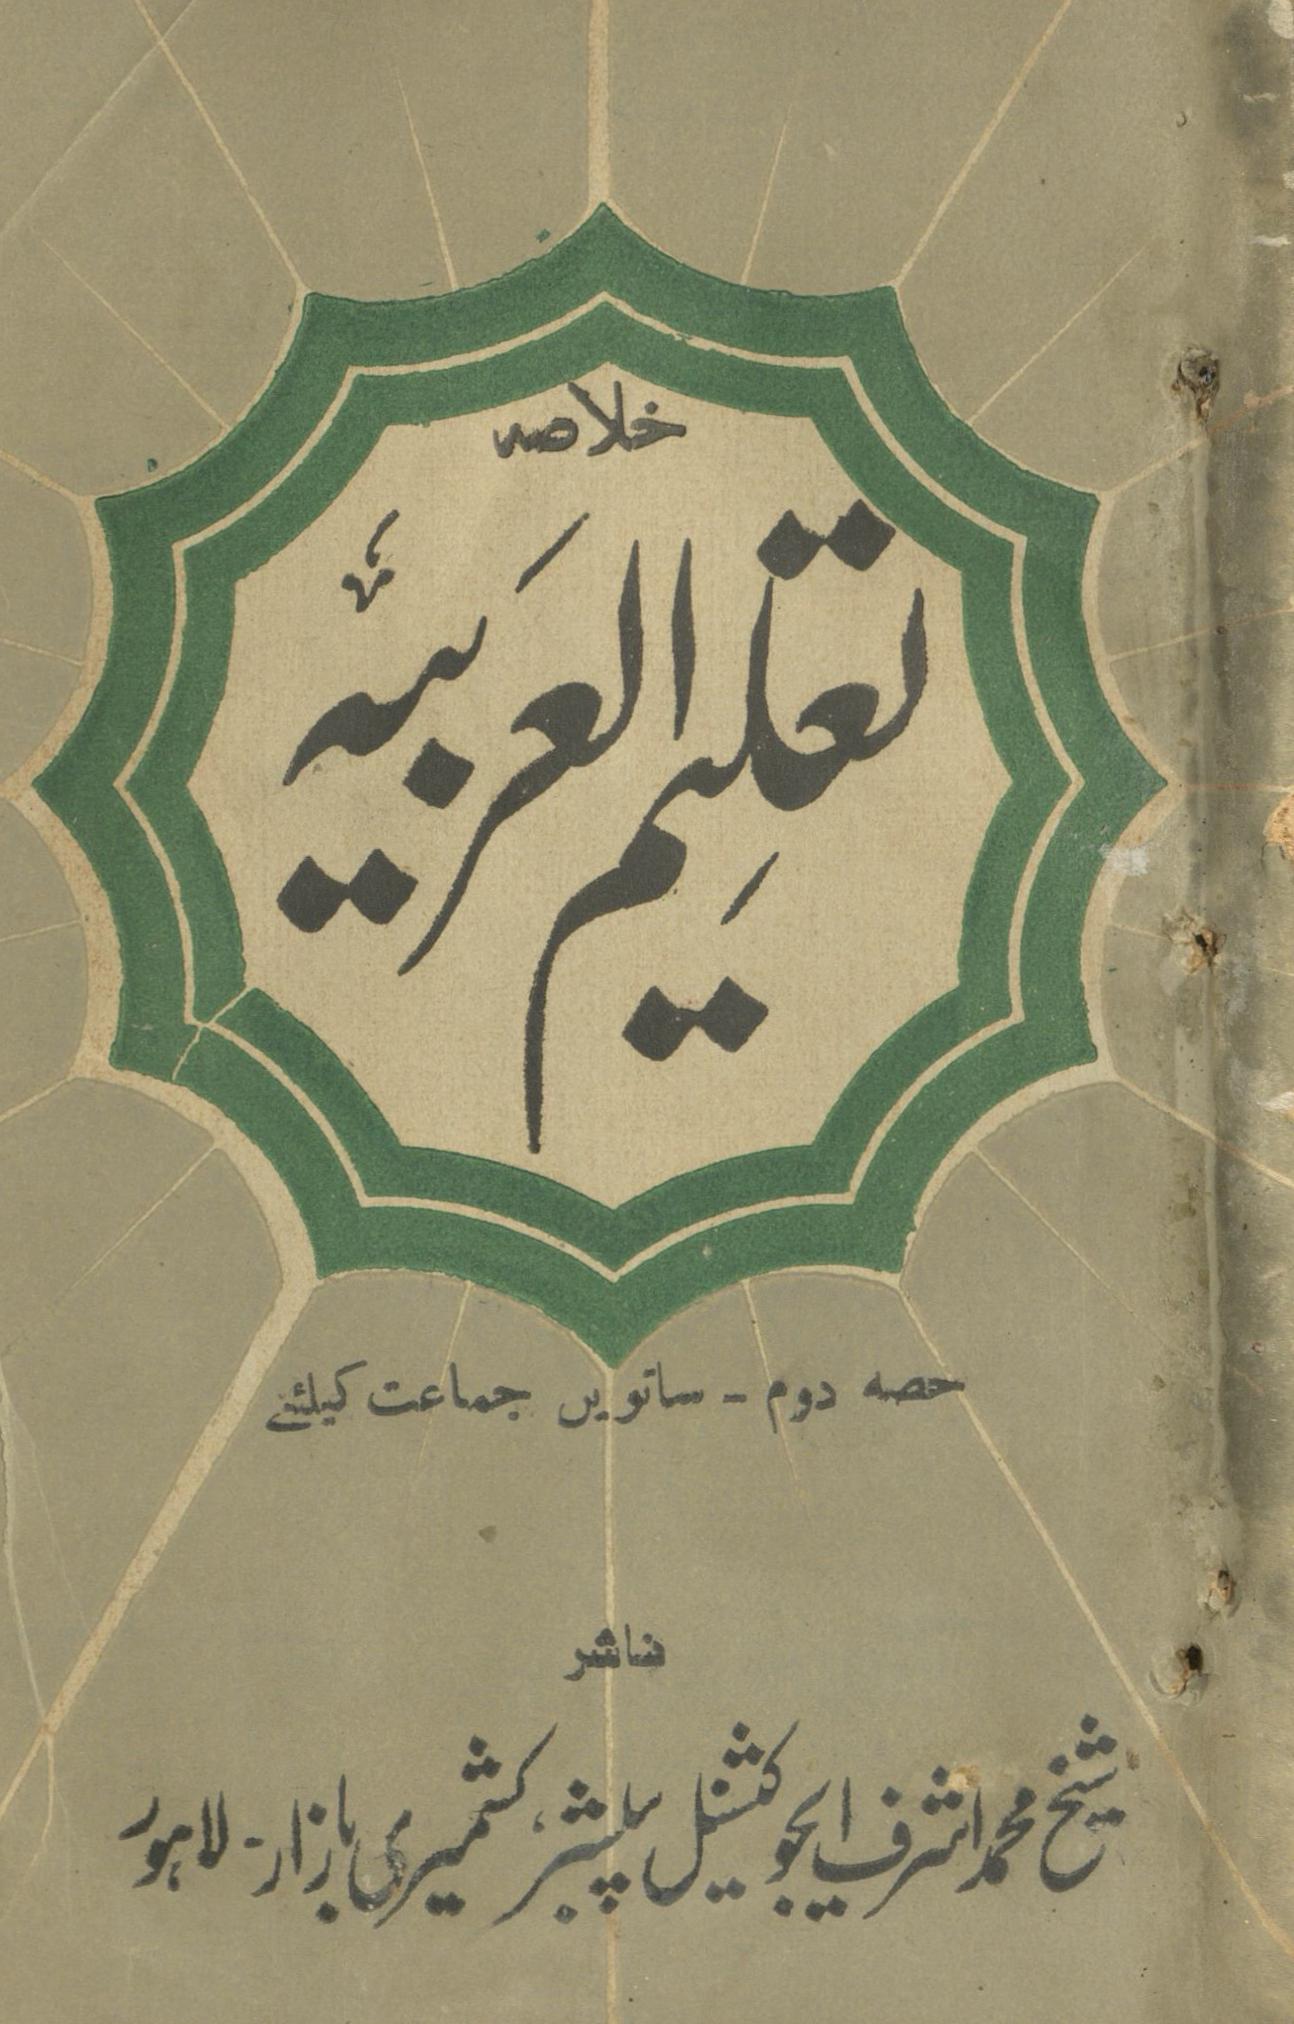 خلاصہ
تعلیم العربیہ
حصہ دوم - ساتویں جماعت کیلئے
ناشر
شیخ محمد اشرف ایجوکیشنل پبلشرز، کشمیری بازار - لاہور